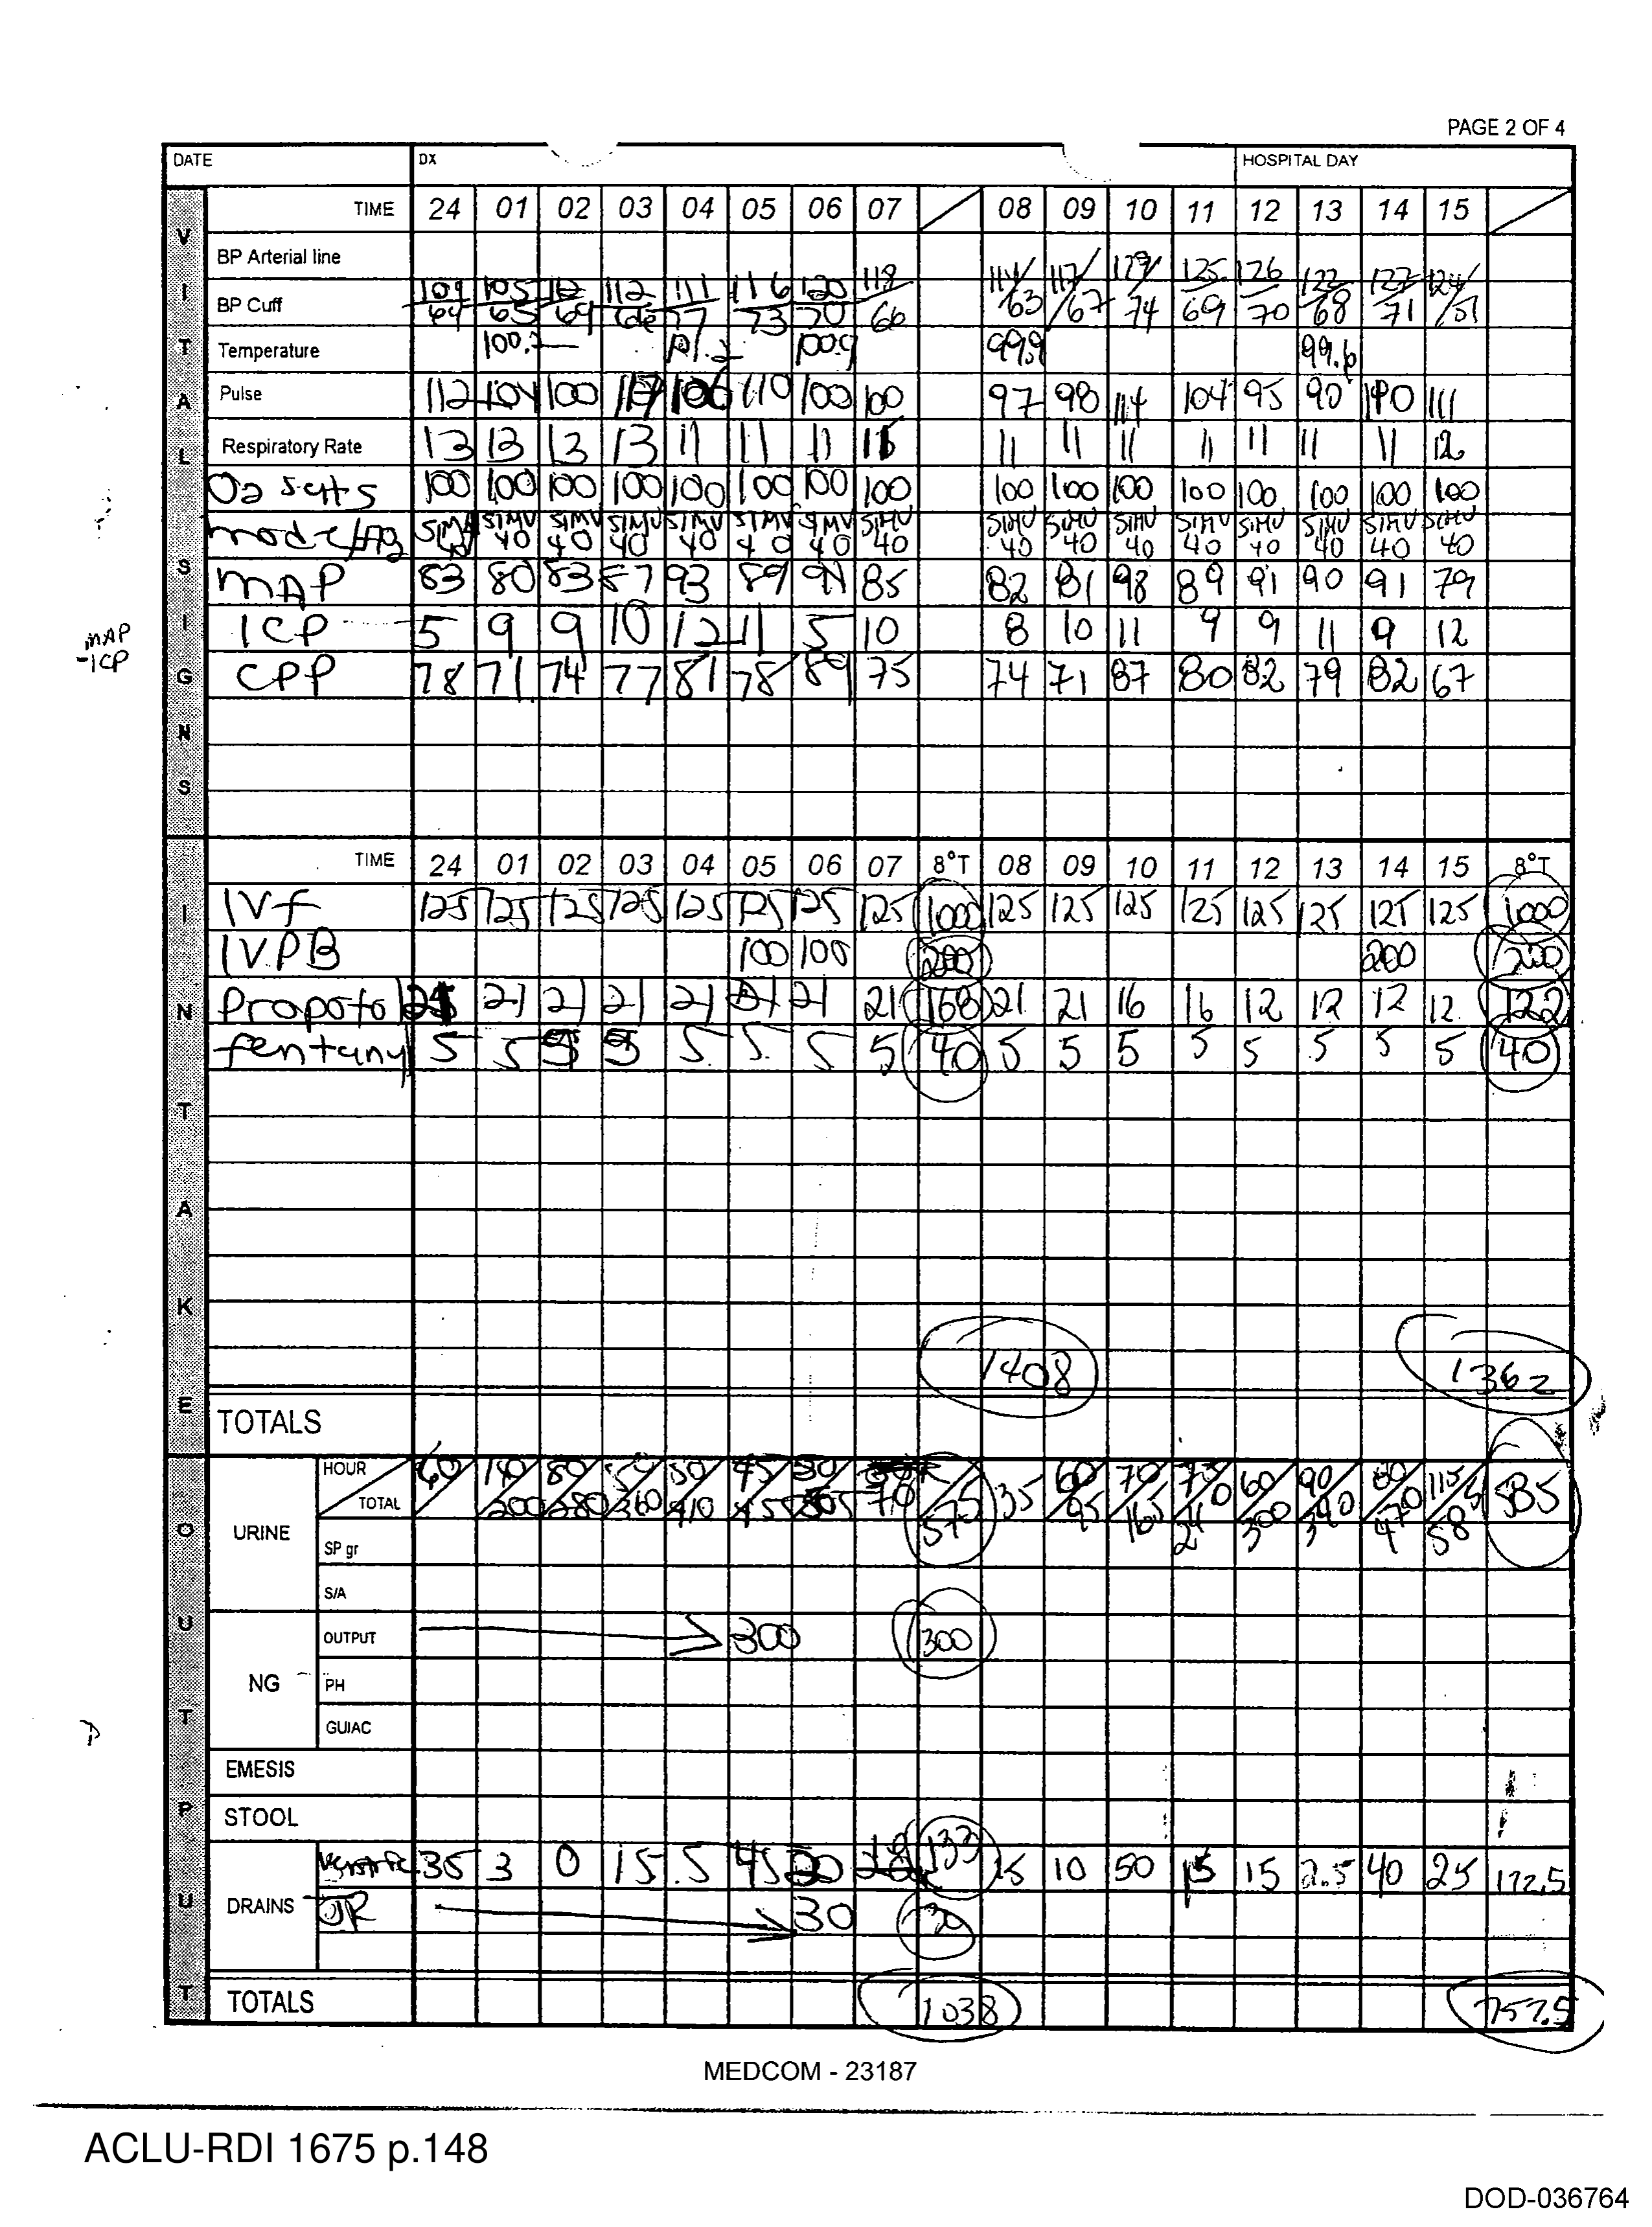 PAGE 2 OF 4
DATE DX HOSPITAL DAY
VITAL SIGNS
TIME 24 01 02 03 04 05 06 07 08 09 10 11 12 13 14 15
BP Arterial line
BP Cuff 109/64 105/65 112/64 112/ 111/77 116/73 120/70 118/66 114/63 117/67 129/74 125/69 126/70 122/68 127/71 124/51
Temperature 100.2 101.2 100.9 99.9 99.6
Pulse 112 104 100 117 106 110 100 100 97 98 114 104 95 90 140 111
Respiratory Rate 13 13 13 13 11 11 11 11 11 11 11 11 11 11 12
O2 sats 100 100 100 100 100 100 100 100 100 100 100 100 100 100 100 100
mode/ SIMV 40 SIMV 40 SIMV 40 SIMV 40 SIMV 40 SIMV 40 SIMV 40 SIMV 40 SIMV 40 SIMV 40 SIMV 40 SIMV 40 SIMV 40 SIMV 40 SIMV 40 SIMV 40
MAP 83 80 83 87 93 89 94 85 82 81 98 89 91 90 91 79
ICP 5 9 9 10 12 11 5 10 8 10 11 9 9 11 9 12
MAP
-ICP
CPP 78 71 74 77 81 78 89 75 74 71 87 80 82 79 82 67
INTAKE
TIME 24 01 02 03 04 05 06 07 8°T 08 09 10 11 12 13 14 15 8°T
IVf 125 125 125 125 125 125 125 125 1000 125 125 125 125 125 125 125 125 1000
IVPB 100 100 200 200 200
Propofol 21 21 21 21 21 21 21 21 168 21 21 16 16 12 12 12 12 122
fentanyl 5 5 5 5 5 5 5 5 40 5 5 5 5 5 5 5 5 40
1408 1362
TOTALS
OUTPUT
URINE
HOUR 60 140 80 50 45 50 35 60 70 75 60 90 80 115
TOTAL 200 280 360 410 455 505 70 575 95 165 240 300 390 470 585 585
SP gr
S/A
NG
OUTPUT 300 300
PH
GUIAC
EMESIS
STOOL
DRAINS
35 3 0 15 5 45 20 133 15 10 50 15 15 2.5 40 25 172.5
30 30
TOTALS 1038 757.5
MEDCOM - 23187
ACLU-RDI 1675 p.148
DOD-036764